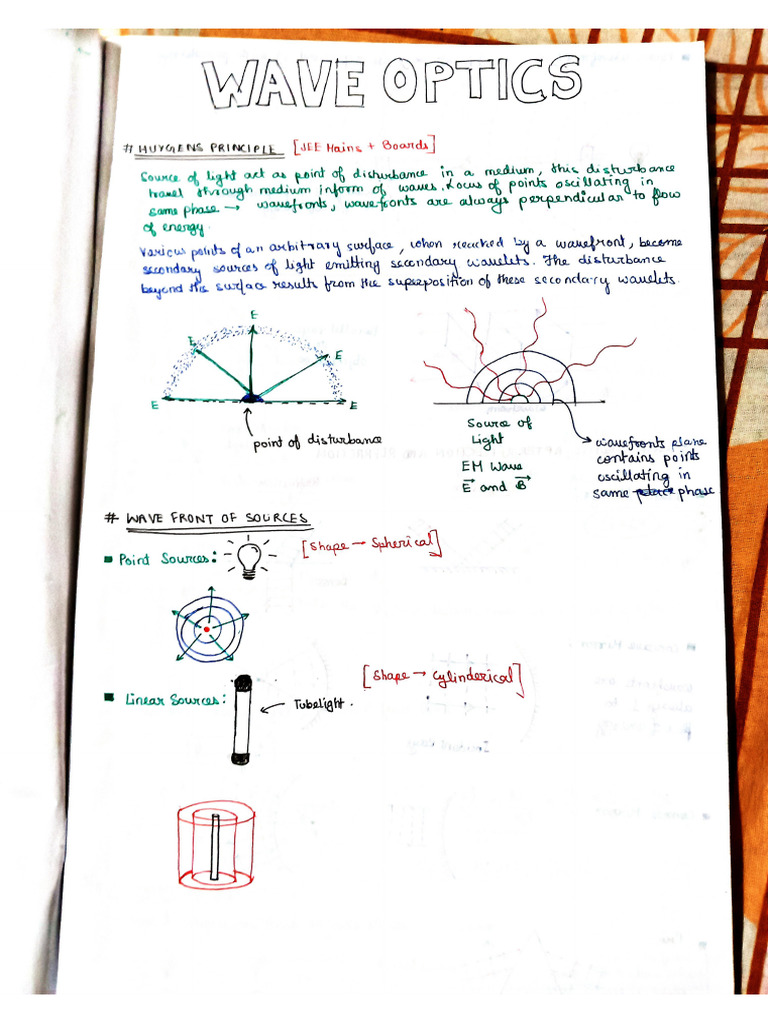 WAVE OPTICS
# HUYGENS PRINCIPLE [JEE Mains + Boards]
Source of light act as point of disturbance in a medium, this disturbance
travel through medium inform of waves. Locus of points oscillating in
same phase → wavefronts, wavefronts are always perpendicular to flow
of energy.
Various points of an arbitrary surface, when reached by a wavefront, become
secondary sources of light emitting secondary wavelets. The disturbance
beyond the surface results from the superposition of these secondary wavelets.
E
E
E
E
E
point of disturbance
Source of
Light
EM Wave
E and B
wavefronts plane
contains points
oscillating in
same phase
# WAVE FRONT OF SOURCES
Point Sources: [Shape → Spherical]
[Shape → Cylinderical]
Linear Sources: Tubelight.